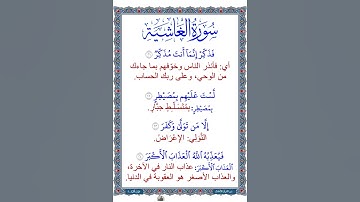 سورة الغاشية
فَذَكِّرْ إِنَّمَا أَنتَ مُذَكِّرٌ
أي: فأنذر الناس وخوّفهم بما جاءك
من الوحي، وعلى ربك الحساب.
لَّسْتَ عَلَيْهِم بِمُصَيْطِرٍ
بِمُصَيْطِرٍ: بمتسلّط جبّار.
إِلَّا مَن تَوَلَّىٰ وَكَفَرَ
التَّوَلِّي: الإعْرَاضُ.
فَيُعَذِّبُهُ اللَّهُ الْعَذَابَ الْأَكْبَرَ
الْعَذَابَ الْأَكْبَرَ: عذاب النار في الآخرة،
والعذاب الأصغر هو العقوبة في الدنيا.